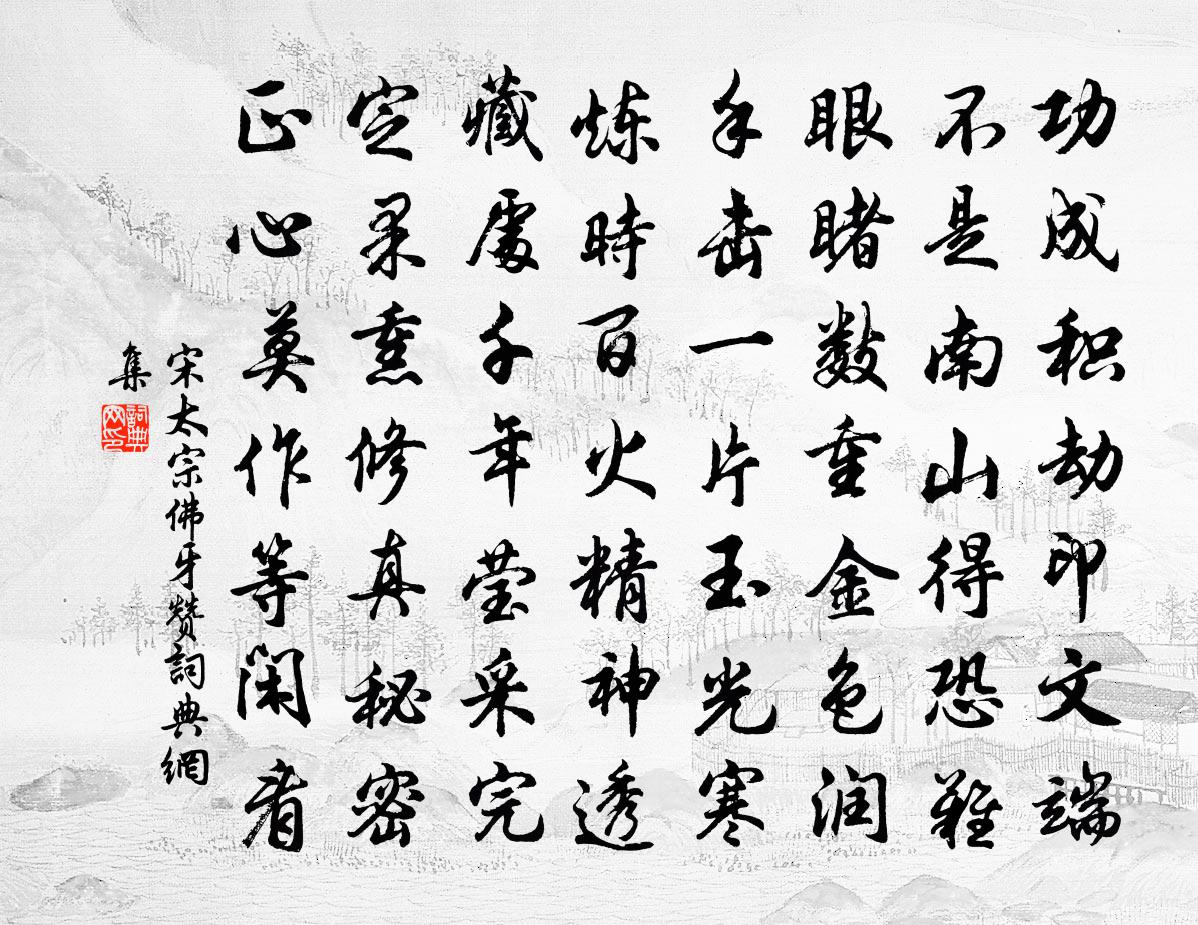 功成积劫印文端
不是南山得恐难
眼睹数重金色润
手击一片玉光寒
炼时百火精神透
藏處千年莹采完
定果熏修真秘密
正心莫作等闲看
宋太宗佛牙赞詞典網
集
詞典網印